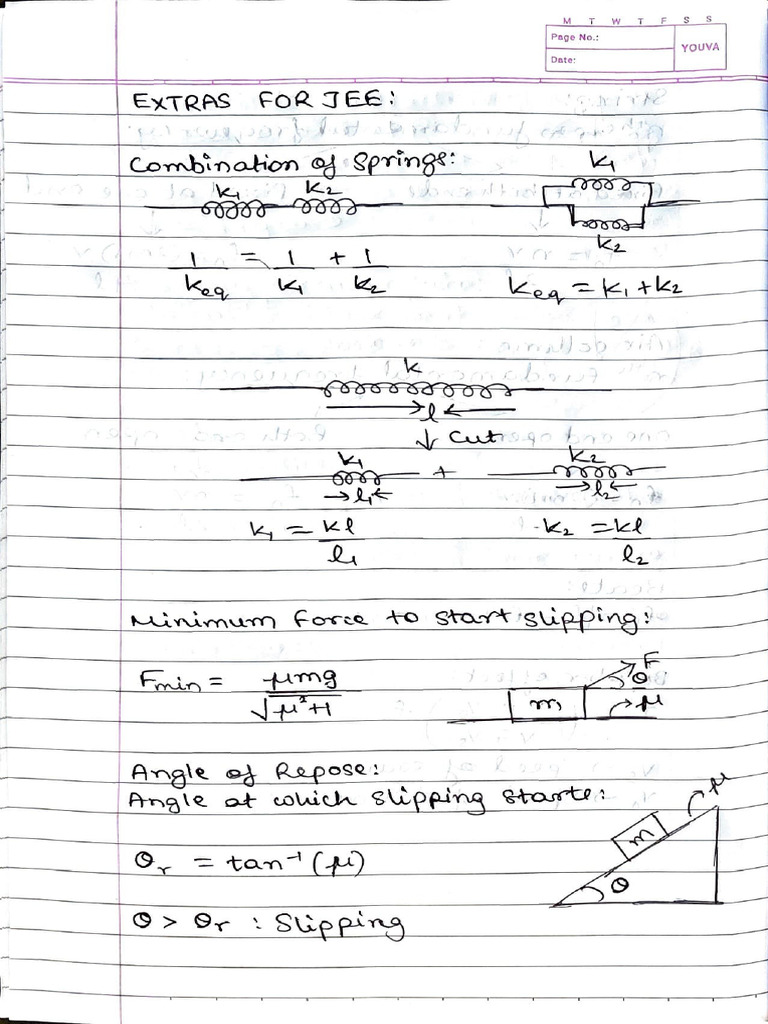 M T W T F S S
Page No.:
Date:
YOUVA
EXTRAS FOR JEE:
Combination of Springs:
K₁ K₂
K₁
K₂
1/Keq = 1/K₁ + 1/K₂
Keq = K₁ + K₂
K
l
↓ Cut
K₁ + K₂
l₁ l₂
K₁ = Kl/l₁
K₂ = Kl/l₂
Minimum Force to start slipping:
Fmin = μmg/√μ²+1
F
θ
m
μ
Angle of Repose:
Angle at which slipping starts:
μ
m
θ
θr = tan⁻¹(μ)
θ > θr : Slipping